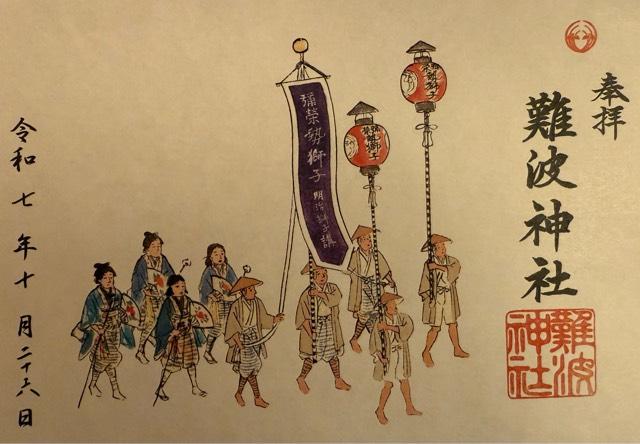 奉拝
難波神社
難波神社
彌榮勢獅子
明治獅子講
彌榮勢獅子
彌榮勢獅子
令和七年十月二十六日